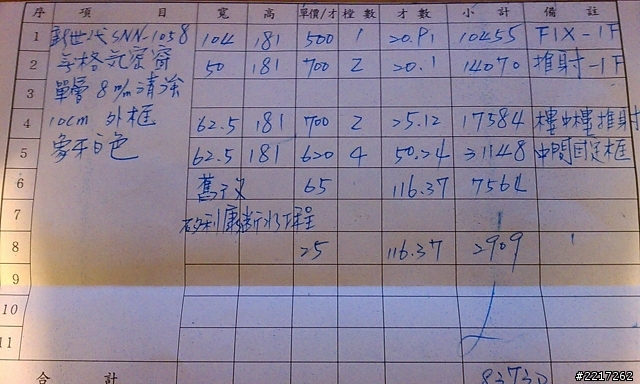 序 項目 寬 高 單價/才 樘數 才數 小計 備註
1 新世代 SNN-1058 104 181 500 1 20.91 10455 FIX-1F
2 氣密窗 50 181 700 2 20.1 14070 推射-1F
3 單層 8m/m 清強
4 10cm 外框 62.5 181 700 2 25.12 17584 樓中樓推射
5 象牙白色 62.5 181 620 4 50.24 31148 中間固定框
6 舊 65 116.37 7564
7 矽利康斷水工程
8 25 116.37 2909
9
10
11
合計 83730
#2217262